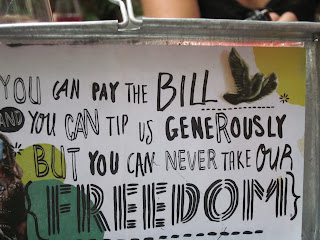 YOU CAN PAY THE BILL
AND YOU CAN TIP US GENEROUSLY
BUT YOU CAN NEVER TAKE OUR
{FREEDOM}